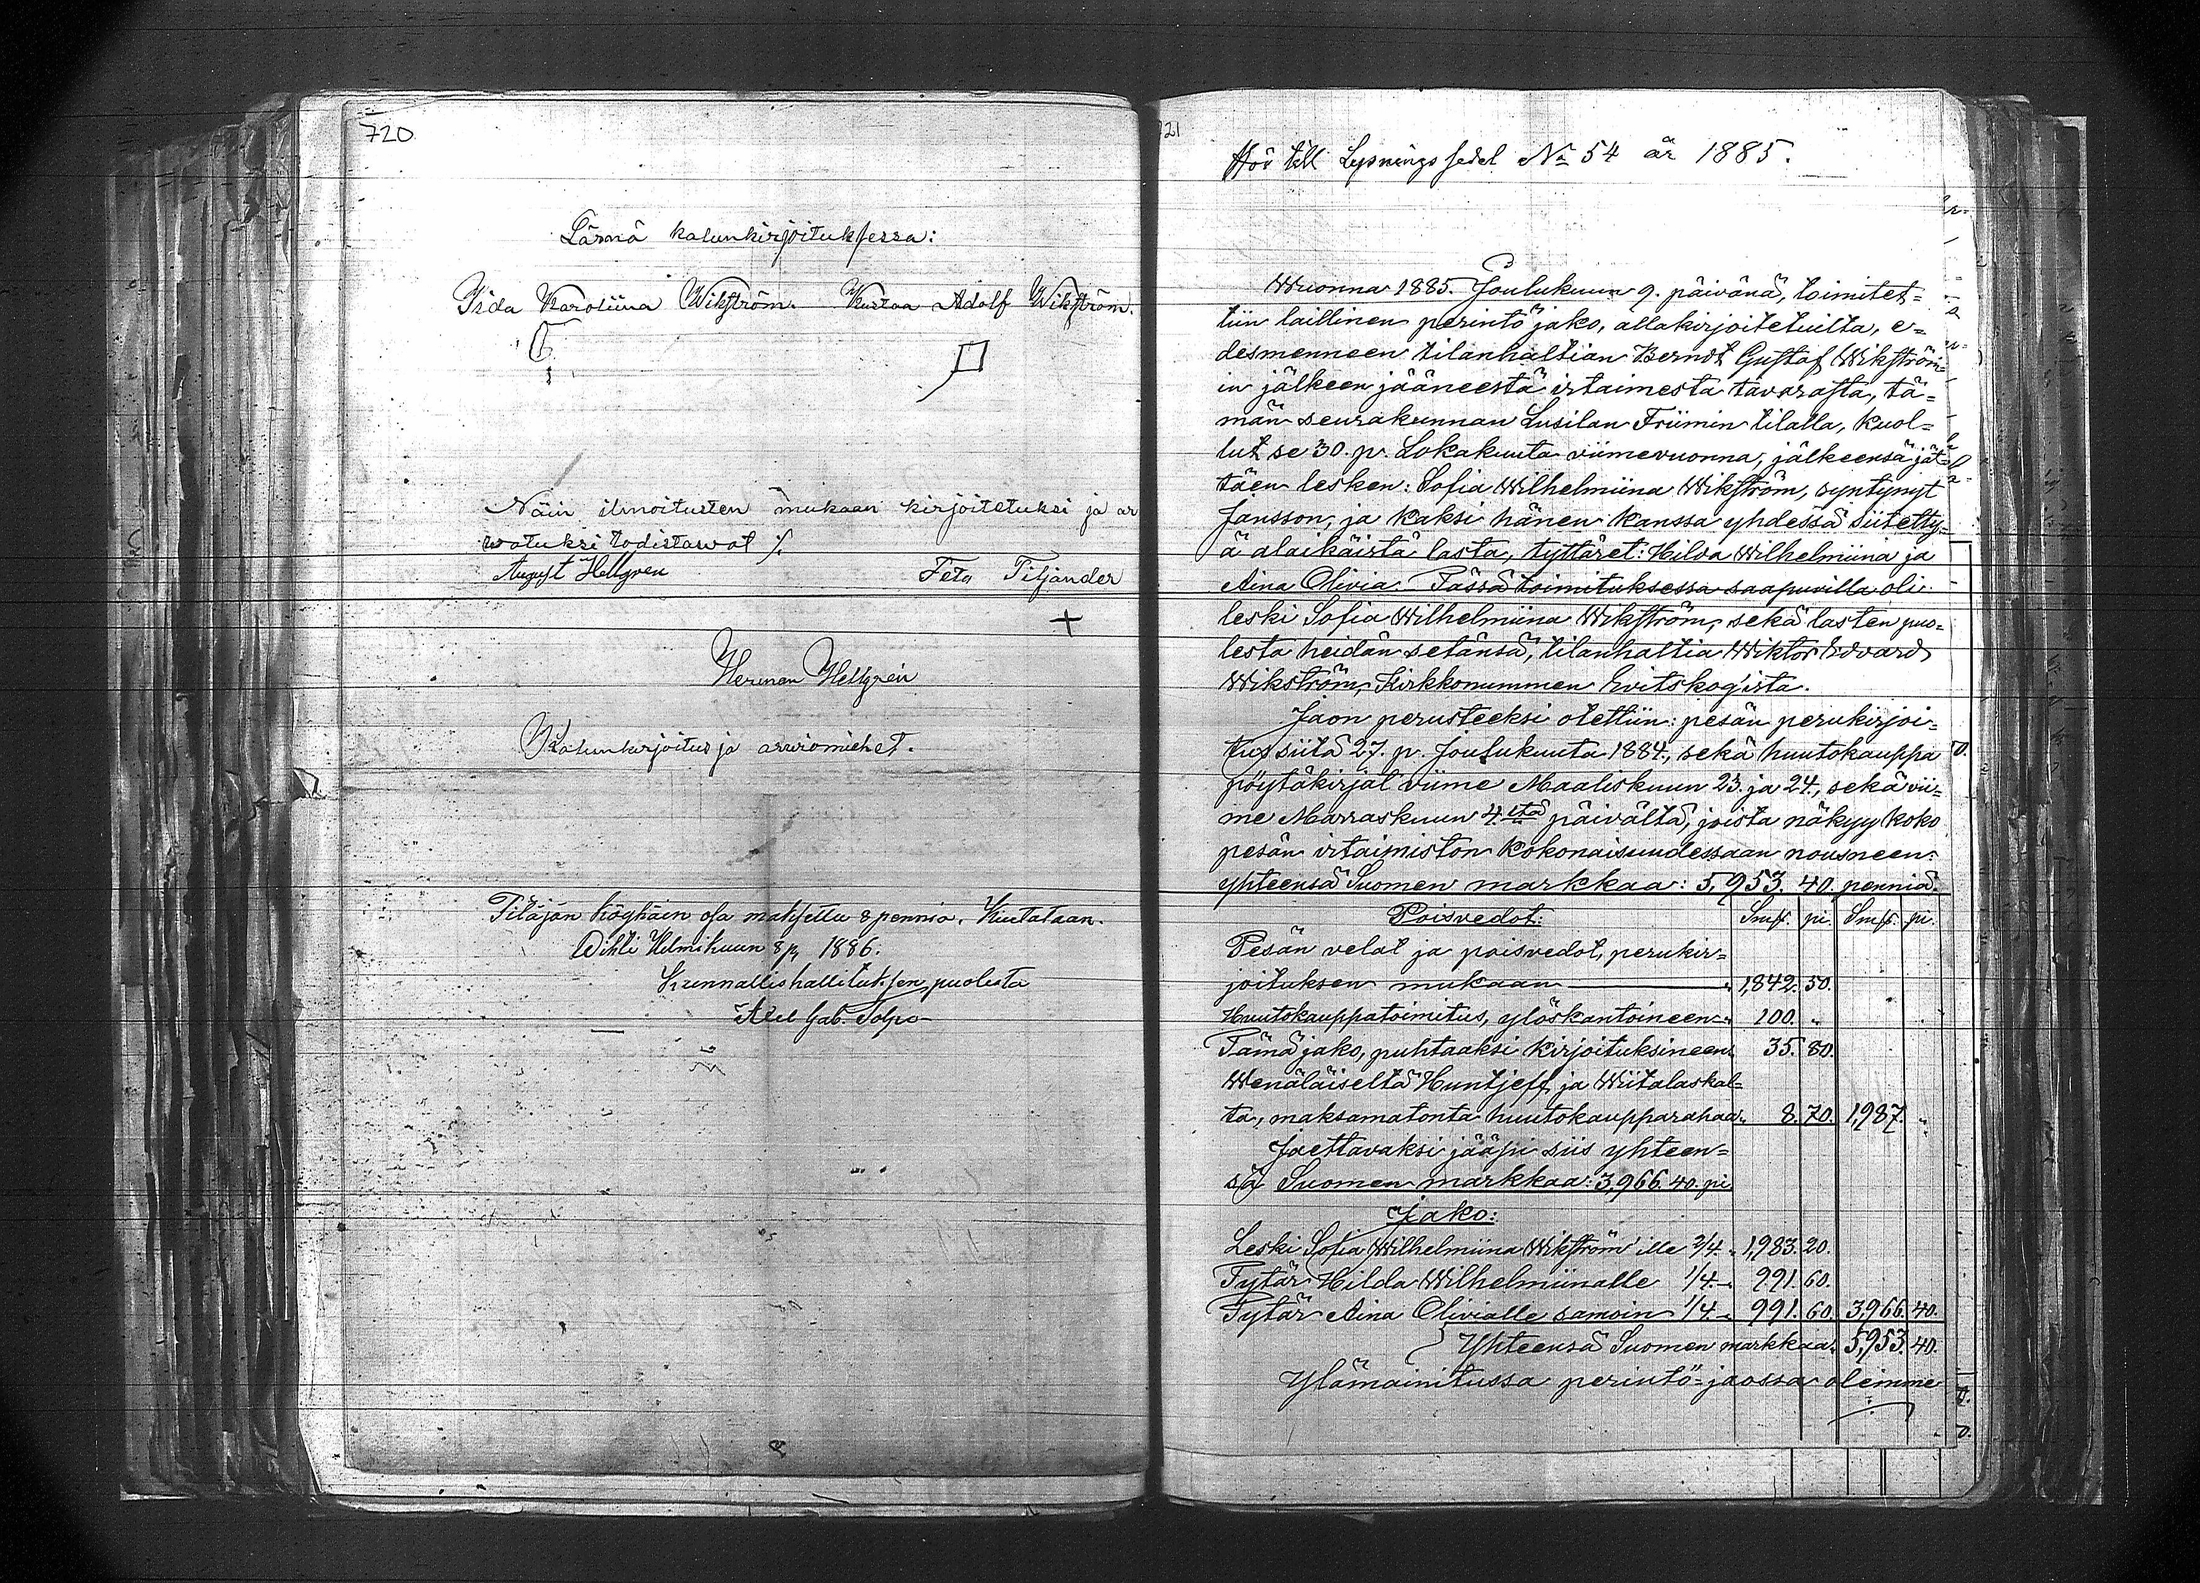 720
Läsnä kalunkirjoituksessa:
Iida Karoliina Wikström. Kustaa Adolf Wikström.
Näin ilmoitusten mukaan kirjoitetuksi ja ar
watuksi todistawat ·/.
August Hellgren Feto Tiljander
+
Herman Hellgrén
Kalunkirjoitus ja arviomiehet.
osa maksettu 8 penniä. Kuitataan.
Wihti Helmikuun 8 p, 1886.
Kunnallishallituksen puolesta
Axel Gab.
721
Hör till Lysningssedel No 54 år 1885.
Wuonna 1885. Joulukuun 9. päivänä, toimitet=
tiin laillinen perintö jako, allakirjoitetuilta, e=
desmenneen tilanhaltian Berndt Gustaf Wikström=
in jälkeen jääneestä irtaimesta tavarasta, tä=
män seurakunnan Lusilan Friimin tilalla, kuol=
lut se 30. p. Lokakuuta viimevuonna, jälkeensä jät=
täen lesken: Sofia Wilhelmiina Wikström, syntynyt
Jansson, ja kaksi hänen kanssa yhdessä siitetty=
ä alaikäistä lasta, tyttäret: Hilda Wilhelmiina ja
Aina Olivia. Tässä toimituksessa saapuvilla oli
leski Sofia Wilhelmiina Wikström, sekä lasten puo=
lesta heidän setänsä, tilanhaltia Wiktor Edvard
Wikström, Kirkkonummen Evitskog'ista.
Jaon perusteeksi otettiin: pesän perukirjoi=
tus siitä 27. p. Joulukuuta 1884., sekä huutokauppa
pöytäkirjat viime Maaliskuun 23. ja 24., sekä vii=
me Marraskuun 4.stä päivältä, joista näkyy koko
pesän irtaimiston kokonaisuudessaan nousneen:
yhteensä Suomen markkaa: 5,953. 40. penniä.
Poisvedot: Smk. pi. Smk. pi.
Pesän velat ja poisvedot, perukir=
joituksen mukaan 1,842. 50.
Huutokauppatoimitus, ylöskantoineen " 100. "
Tämä jako, puhtaaksi kirjoituksineen 35. 80.
Wenäläiseltä Huntjeff, ja Wiitalaskal=
ta, maksamatonta huutokaupparahaa " 8. 70. 1,987. "
Jaettavaksi jääpi siis yhteen=
sä Suomen markkaa: 3,966. 40. pi
Jako:
Leski Sofia Wilhelmiina Wikström'ille 2/4. " 1,983. 20.
Tytär Hilda Wilhelmiinalle 1/4. " 991. 60.
Tytär Aina Olivialle samoin 1/4. " 991. 60. 3,966. 40.
Yhteensä Suomen markkaa. 5,953. 40.
Ylämainitussa perintö=jaossa olemme